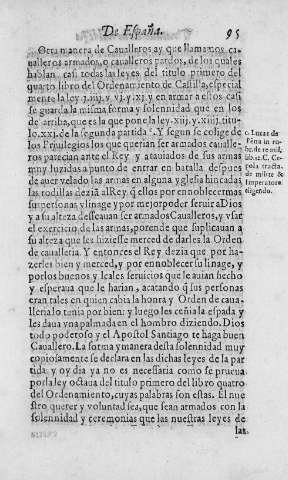 De España. 95
Otra manera de Caualleros ay que llamamos ca-
ualleros armados, o caualleros pardos, de los quales
hablan casi todas las leyes del titulo primero del
quarto libro del Ordenamiento de Castilla, especial
mente la ley .j.iij. y vj. y .xj. y en armar a estos casi
se guarda la misma forma y solennidad que en los
de arriba, que es la que pone la ley .xiij. y .xiiij. titu-
lo .xxj. de la segunda partida. Y segun se colige de
los Priuilegios los que querian ser armados caualle-
ros parecian ante el Rey y atauiados de sus armas
muy luzidas a punto de entrar en batalla despues
de auer velado las armas en alguna yglesia hincadas
las rodillas dezia al Rey, que ellos por ennoblecer mas
su personas y linage y por mejor poder seruir a Dios
y a su alteza desseauan ser armados Caualleros, y vsar
el exercicio de las armas, porende que suplicauan a
su alteza que les hiziesse merced de darles la Orden
de caualleria. Y entonces el Rey dezia que por ha-
zerles bien y merced, y por ennoblecer su linage, y
por los buenos y leales seruicios que le auian hecho
y esperaua que le harian, acatando q̃ sus personas
eran tales en quien cabia la honra y Orden de caua-
lleria lo tenia por bien: y luego les ceñia la espada y
les daua vna palmada en el hombro diziendo. Dios
todo poderoso y el Apostol Santiago te haga buen
Cauallero. La forma y manera desta solennidad muy
copiosamente se declara en las dichas leyes de la par
tida: y oy dia ya no es necessaria como se prueua
por la ley octaua del titulo primero del libro quatro
del Ordenamiento, cuyas palabras son estas. El nue
stro querer y voluntad sea, que sean armados con la
solennidad y ceremonias que las nuestras leyes de
las
c. Lucas de
Pena in ru-
br. de re mil.
lib. 12. C. Ce-
pola tracta.
de milite &
Imperatore
eligendo.